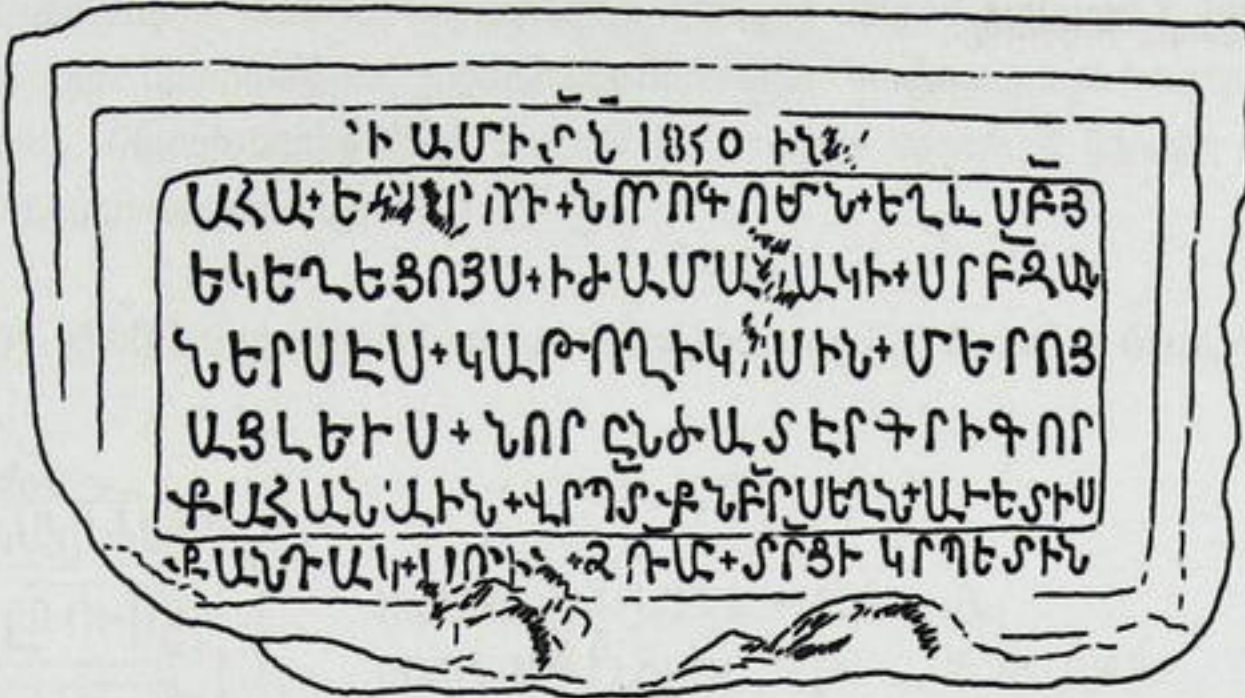 ՚Ի ԱՄԻ ՐՆ 1850 ԻՆ
ԱՀԱ+Ե ՆՈՐՈԳՈՒՄՆ+ԵՂԵՒ ՍԲՅ
ԵԿԵՂԵՑՈՅՍ+ԻԺԱՄԱ ԱԿԻ+ՍՐԲԶԱՆ
ՆԵՐՍԷՍ+ԿԱԹՈՂԻԿ ՍԻՆ+ՄԵՐՈՅ
ԱՅԼԵՒՍ+ՆՈՐ ԸՆԺԱՏԷՐ ԳՐԻԳՈՐ
ՔԱՀԱՆԱԻՆ+ՎՐՊՏ ՔՆԲՐՍԵՂՆ+ԱՒԵՏԻՍ
ՔԱՆԴԱԿ ՏՐՑԻ ԿՐՊԵՏԻՆ